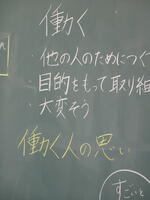 働く
・他の人のためにつく
・目的をもって取り組
・大変そう
働く人の思い
すごいと